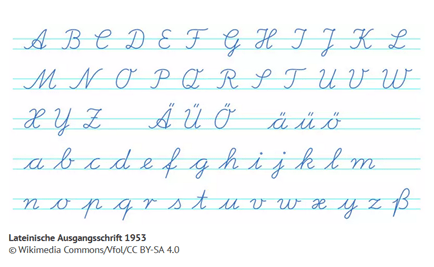 A B C D E F G H I J K L
M N O P Q R S T U V W
X Y Z Ä Ü Ö ä ü ö
a b c d e f g h i j k l m
n o p q r s t u v w x y z ß
Lateinische Ausgangsschrift 1953
© Wikimedia Commons/Vfol/CC BY-SA 4.0